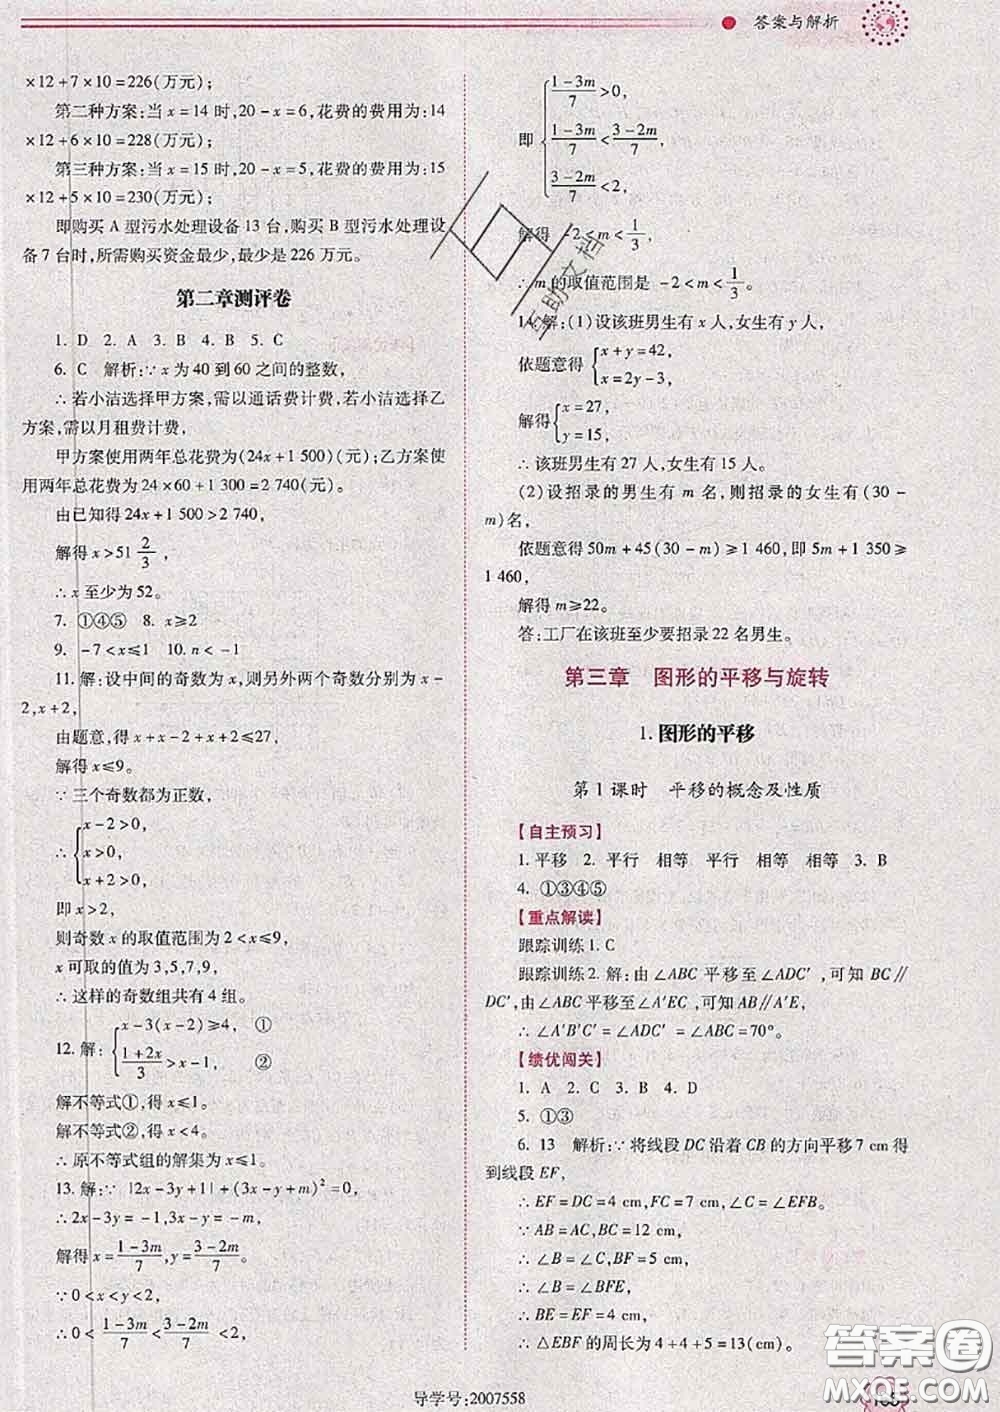 答案与解析
×12+7×10=226(万元);
第二种方案:当 x=14 时,20-x=6,花费的费用为:14
×12+6×10=228(万元);
第三种方案:当 x=15 时,20-x=5,花费的费用为:15
×12+5×10=230(万元);
即购买 A 型污水处理设备 13 台,购买 B 型污水处理设
备 7 台时,所需购买资金最少,最少是 226 万元。
第二章测评卷
1. D 2. A 3. B 4. B 5. C
6. C 解析:∵x 为 40 到 60 之间的整数,
∴若小洁选择甲方案,需以通话费计费,若小洁选择乙
方案,需以月租费计费,
甲方案使用两年总花费为(24x+1 500)(元);乙方案使
用两年总花费为 24×60+1 300=2 740(元)。
由已知得 24x+1 500>2 740,
解得 x>51 2/3,
∴x 至少为 52。
7. ①④⑤ 8. x≥2
9. -7<x≤1 10. n<-1
11. 解:设中间的奇数为 x,则另外两个奇数分别为 x-
2,x+2,
由题意,得 x+x-2+x+2≤27,
解得 x≤9。
∵三个奇数都为正数,
∴{x-2>0,
x>0,
x+2>0,
即 x>2,
则奇数 x 的取值范围为 2<x≤9,
x 可取的值为 3,5,7,9,
∴这样的奇数组共有 4 组。
12. 解:{x-3(x-2)≥4, ①
(1+2x)/3>x-1, ②
解不等式①,得 x≤1。
解不等式②,得 x<4。
∴原不等式组的解集为 x≤1。
13. 解:∵|2x-3y+1|+(3x-y+m)²=0,
∴2x-3y=-1,3x-y=-m,
解得 x=(1-3m)/7,y=(3-2m)/7。
∵0<x<y<2,
∴0<(1-3m)/7<(3-2m)/7<2,
即{(1-3m)/7>0,
(1-3m)/7<(3-2m)/7,
(3-2m)/7<2,
解得 -2<m<1/3,
∴m 的取值范围是 -2<m<1/3。
14. 解:(1)设该班男生有 x 人,女生有 y 人,
依题意得{x+y=42,
x=2y-3,
解得{x=27,
y=15,
∴该班男生有 27 人,女生有 15 人。
(2)设招录的男生有 m 名,则招录的女生有(30-
m)名,
依题意得 50m+45(30-m)≥1 460,即 5m+1 350≥
1 460,
解得 m≥22。
答:工厂在该班至少要招录 22 名男生。
第三章 图形的平移与旋转
1. 图形的平移
第 1 课时 平移的概念及性质
【自主预习】
1. 平移 2. 平行 相等 平行 相等 相等 3. B
4. ①③④⑤
【重点解读】
跟踪训练 1. C
跟踪训练 2. 解:由∠ABC 平移至∠ADC′,可知 BC∥
DC′,由∠ABC 平移至∠A′EC,可知 AB∥A′E,
∴∠A′B′C′=∠ADC′=∠ABC=70°。
【绩优闯关】
1. A 2. C 3. B 4. D
5. ①③
6. 13 解析:∵将线段 DC 沿着 CB 的方向平移 7 cm 得
到线段 EF,
∴EF=DC=4 cm,FC=7 cm,∠C=∠EFB。
∵AB=AC,BC=12 cm,
∴∠B=∠C,BF=5 cm,
∴∠B=∠BFE,
∴BE=EF=4 cm,
∴△EBF 的周长为 4+4+5=13(cm)。
导学号:2007558
答案圈
MXQE.COM